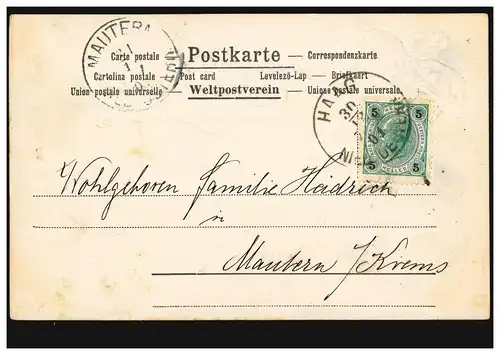 Carte postale Postkarte Correspondenzkarte
Cartolina postale Post card Levelező-Lap Briefkaart
Union postale universelle Weltpostverein Unione postale universale
MAUTERN
HAAG
30
5 5
5 5
HELLER
Wohlgeboren Familie Heidrich
in
Mautern /Krems